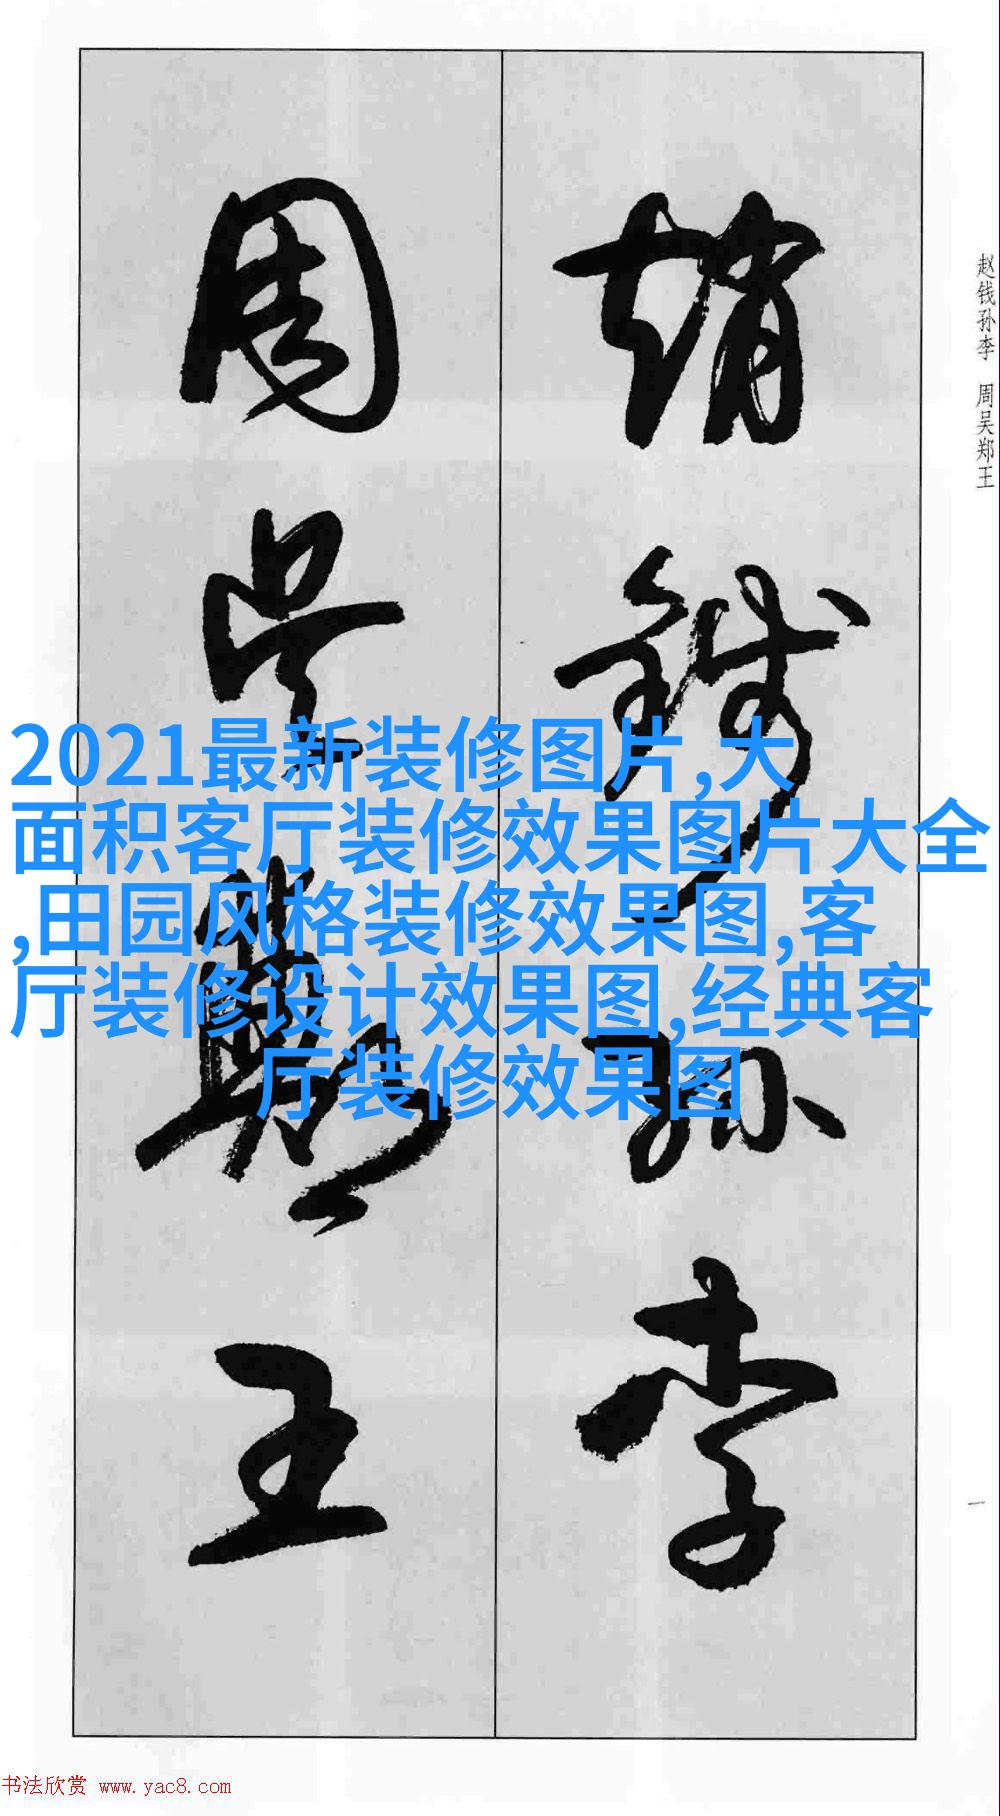 趙錢孫李
周吳鄭王
赵钱孙李 周吴郑王
2021最新装修图片,大
面积客厅装修效果图片大全
,田园风格装修效果图,客
厅装修设计效果图,经典客
厅装修效果图
一
书法欣赏 www.yac8.com